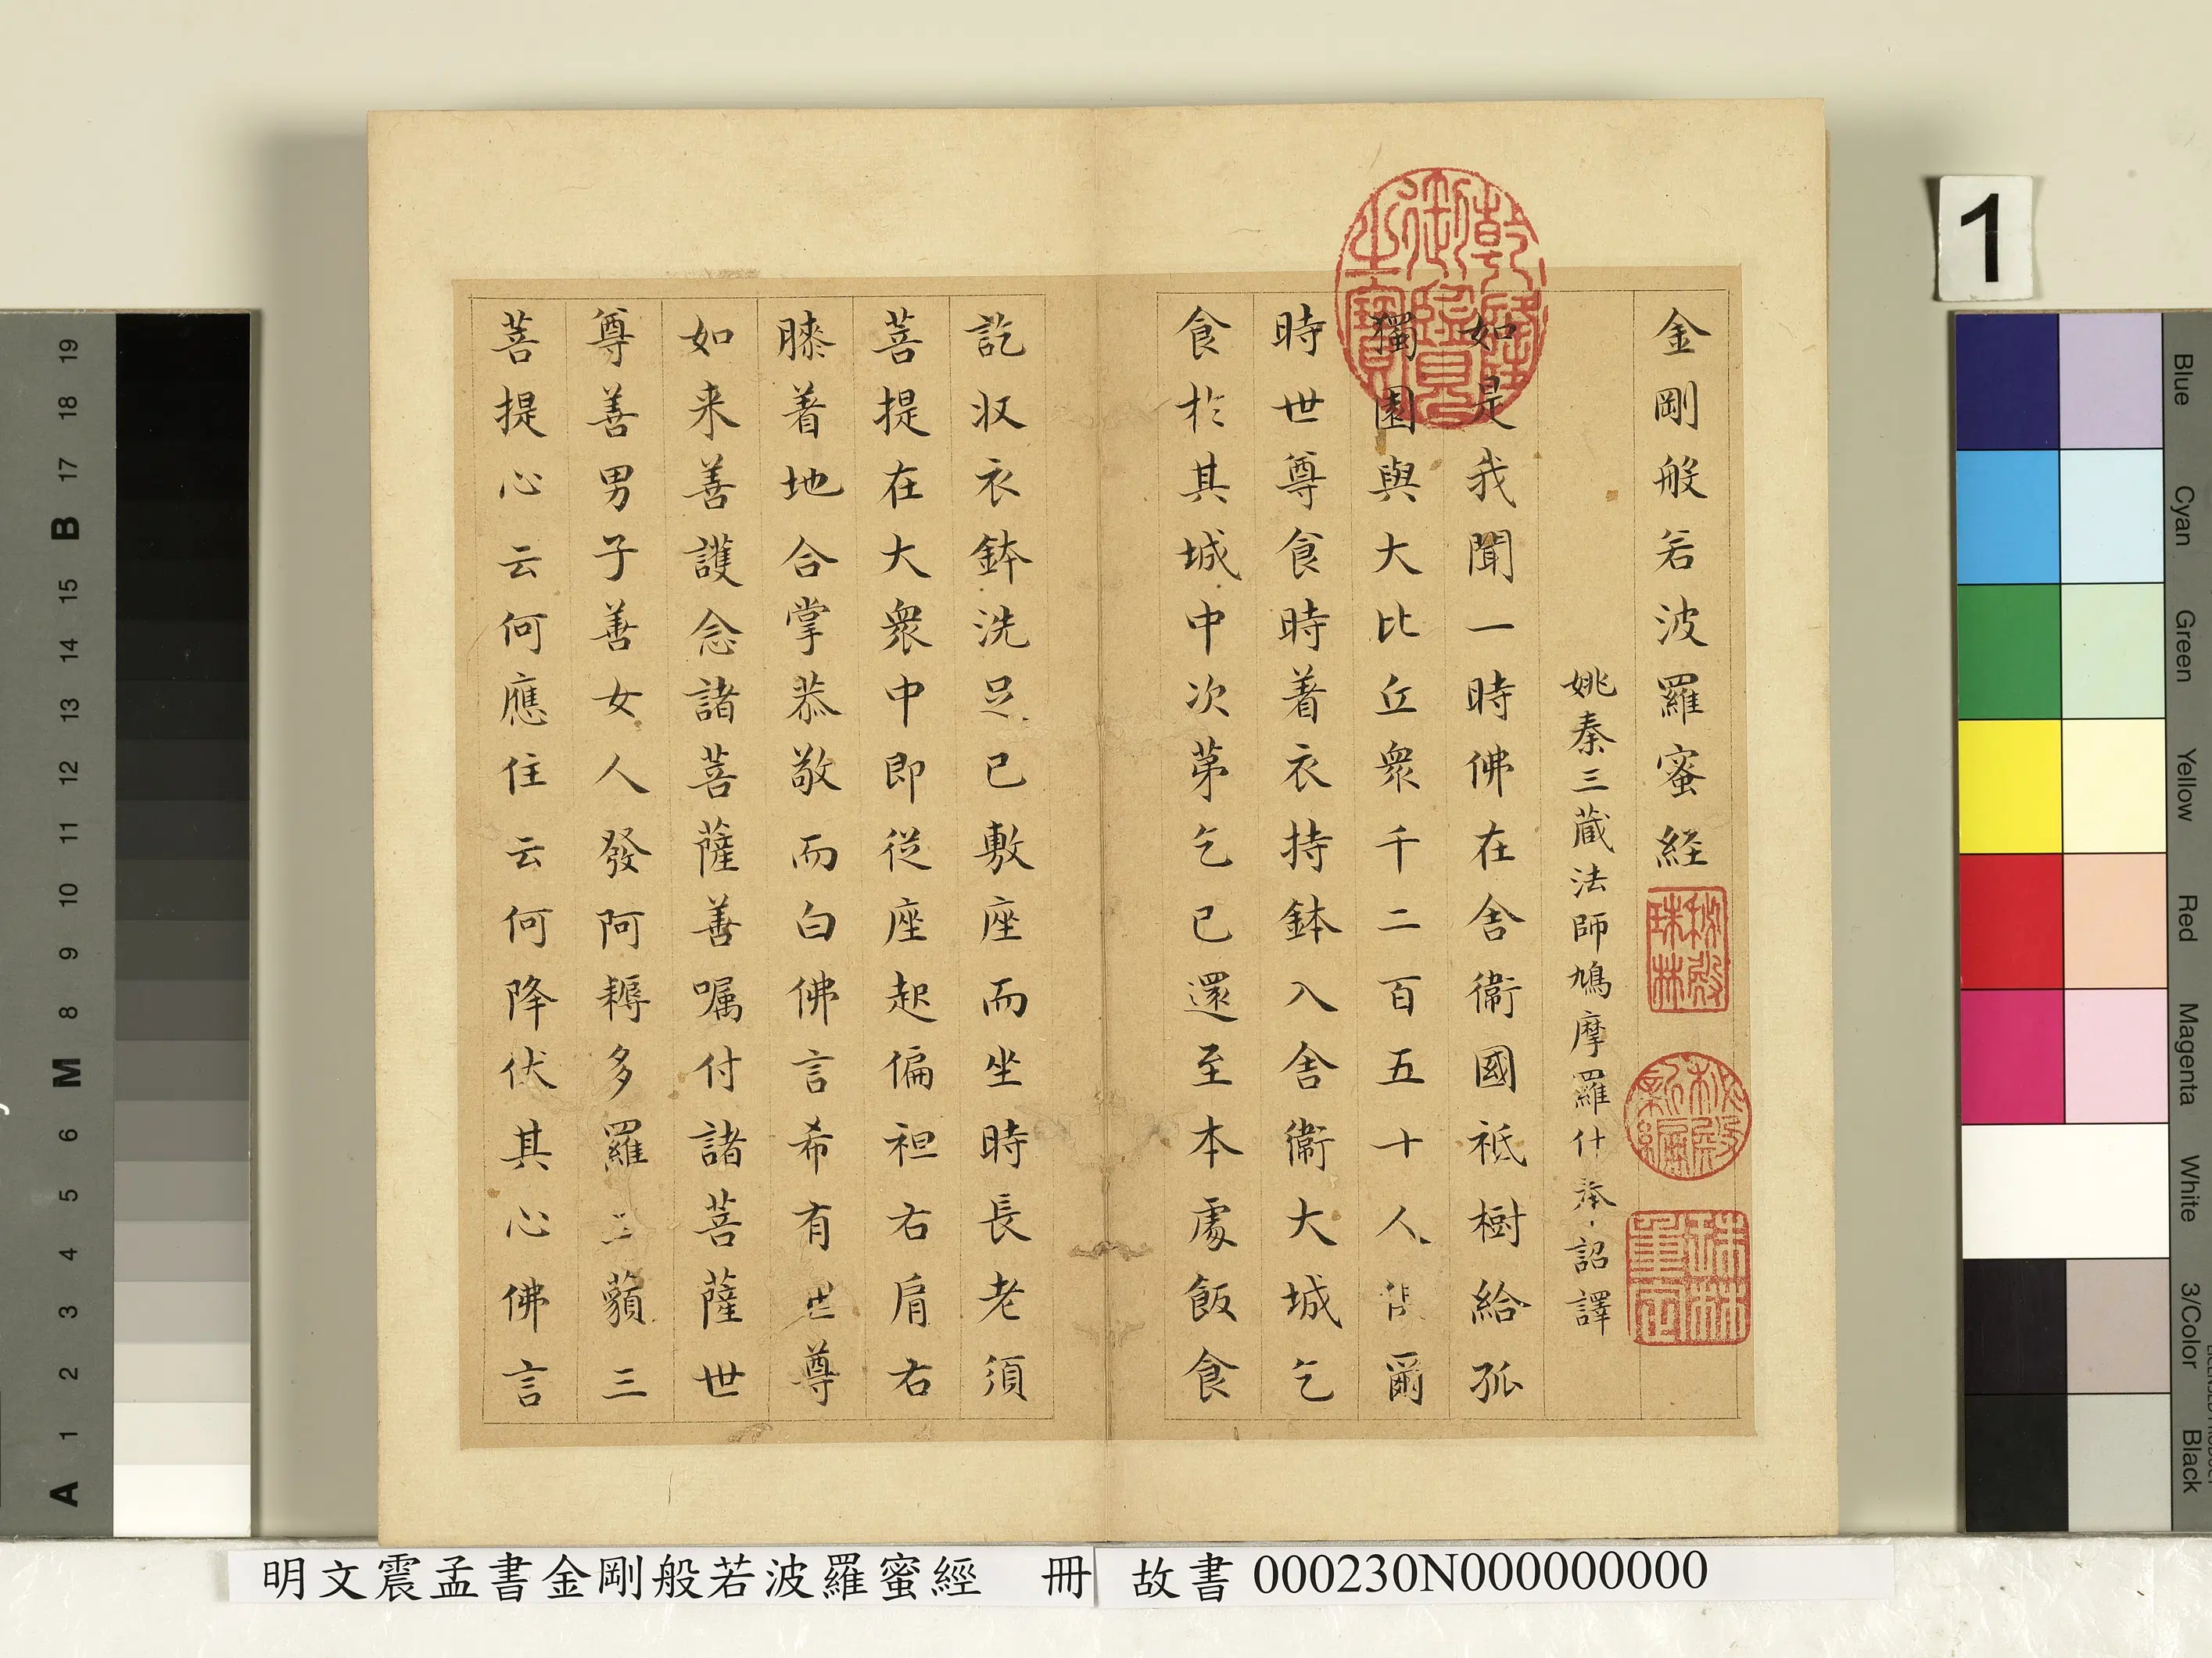 金剛般若波羅蜜経
姚秦三蔵法師鳩摩羅什奉詔譯
如是我聞一時佛在舎衛國祇樹給孤
獨園與大比丘衆千二百五十人俱爾
時世尊食時着衣持鉢入舎衛大城乞
食於其城中次苐乞已還至本處飯食
訖収衣鉢洗足已敷座而坐時長老須
菩提在大衆中即從座起偏袒右肩右
膝着地合掌恭敬而白佛言希有世尊
如来善護念諸菩薩善嘱付諸菩薩世
尊善男子善女人發阿耨多羅三藐三
菩提心云何應住云何降伏其心佛言
乾隆御覽之寶
秘殿珠林
秘殿新編
珠林重定
1
明文震孟書金剛般若波羅蜜經 冊
故書 000230N000000000
19
18
17
B
15
14
13
12
11
10
9
8
M
6
5
4
3
2
1
A
Blue
Cyan
Green
Yellow
Red
Magenta
White
3/Color
Black